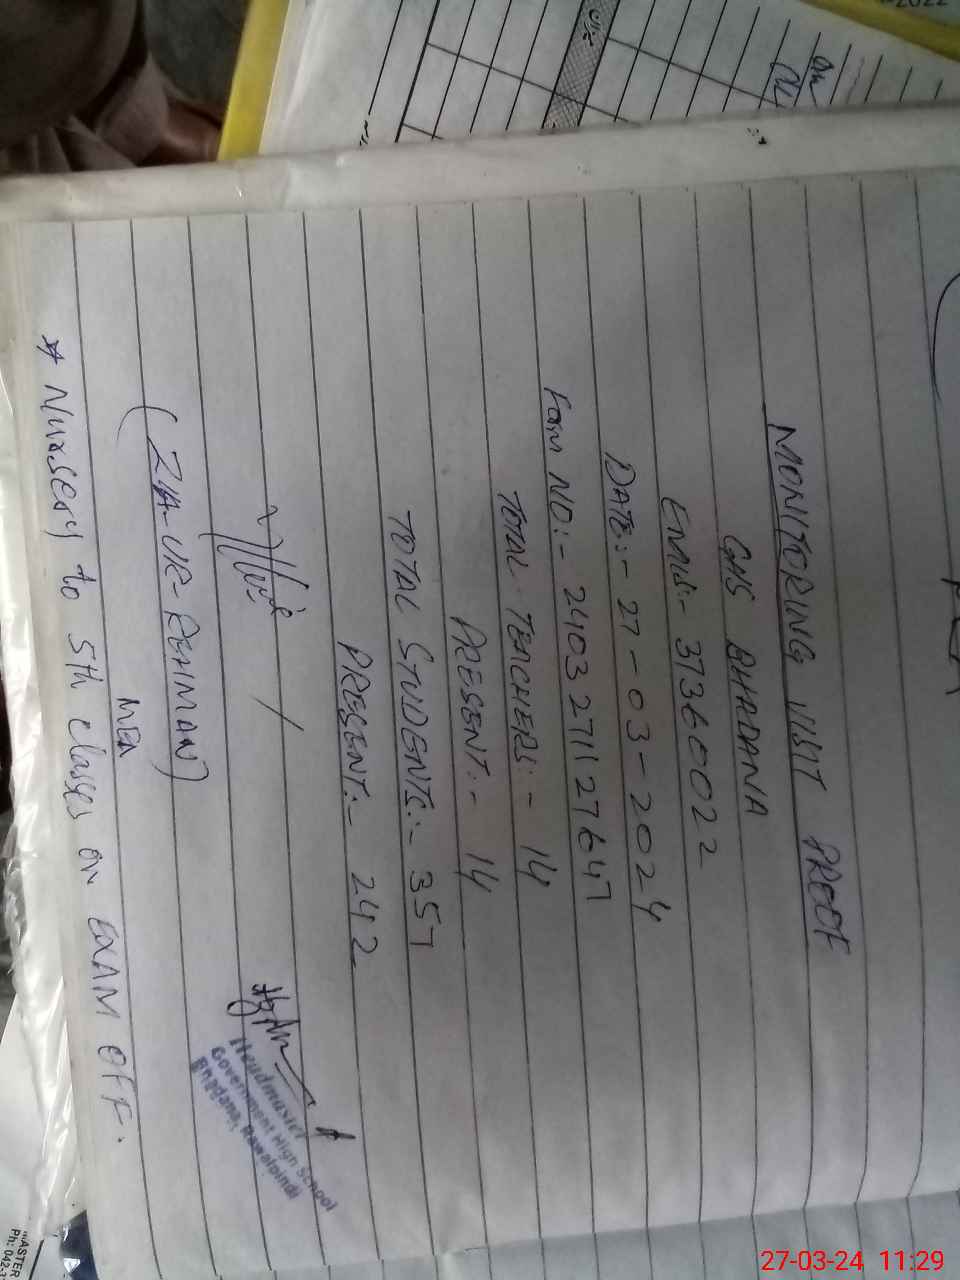 MONITORING VISIT PROOF
GHS BHADANA
EMIS:- 37360022
DATE:- 27-03-2024
Form NO:- 240327112764
TOTAL TEACHERS:- 14
PRESENT:- 14
TOTAL STUDENTS:- 357
PRESENT:- 242
(ZIA-UR-REHMAN)
MEA
* Nursery to 5th classes on EXAM OFF.
Headmaster
Government High School
Bhadana, Rawalpindi
27-03-24 11:29